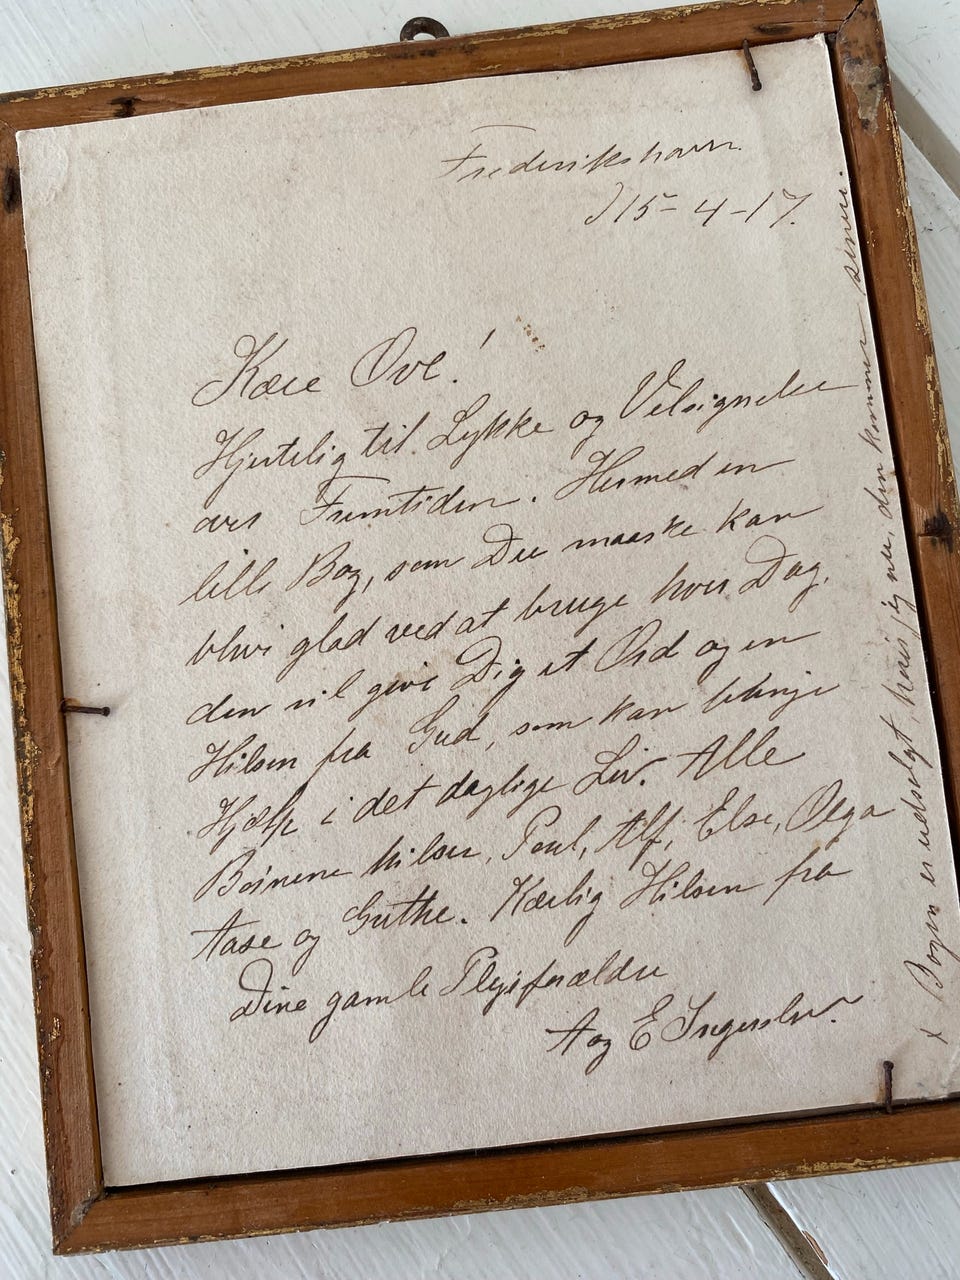 Frederikshavn.
d 15-4-17.
Kære Ove!
Hjertelig til Lykke og Velsignelse
over Fremtiden. Hermed en
lille Bog, som Du maaske kan
blive glad ved at bruge hver Dag,
den vil give Dig et Ord og en
Hilsen fra Gud, som kan bringe
Hjælp i det daglige Liv. Alle
Børnene hilser, Poul, Alf, Else, Olga
Aase og Grethe. Kærlig Hilsen fra
Dine gamle Plejeforældre
A og E Ingerslev.
x Bogen er udsolgt, hører jeg nu, den kommer senere.